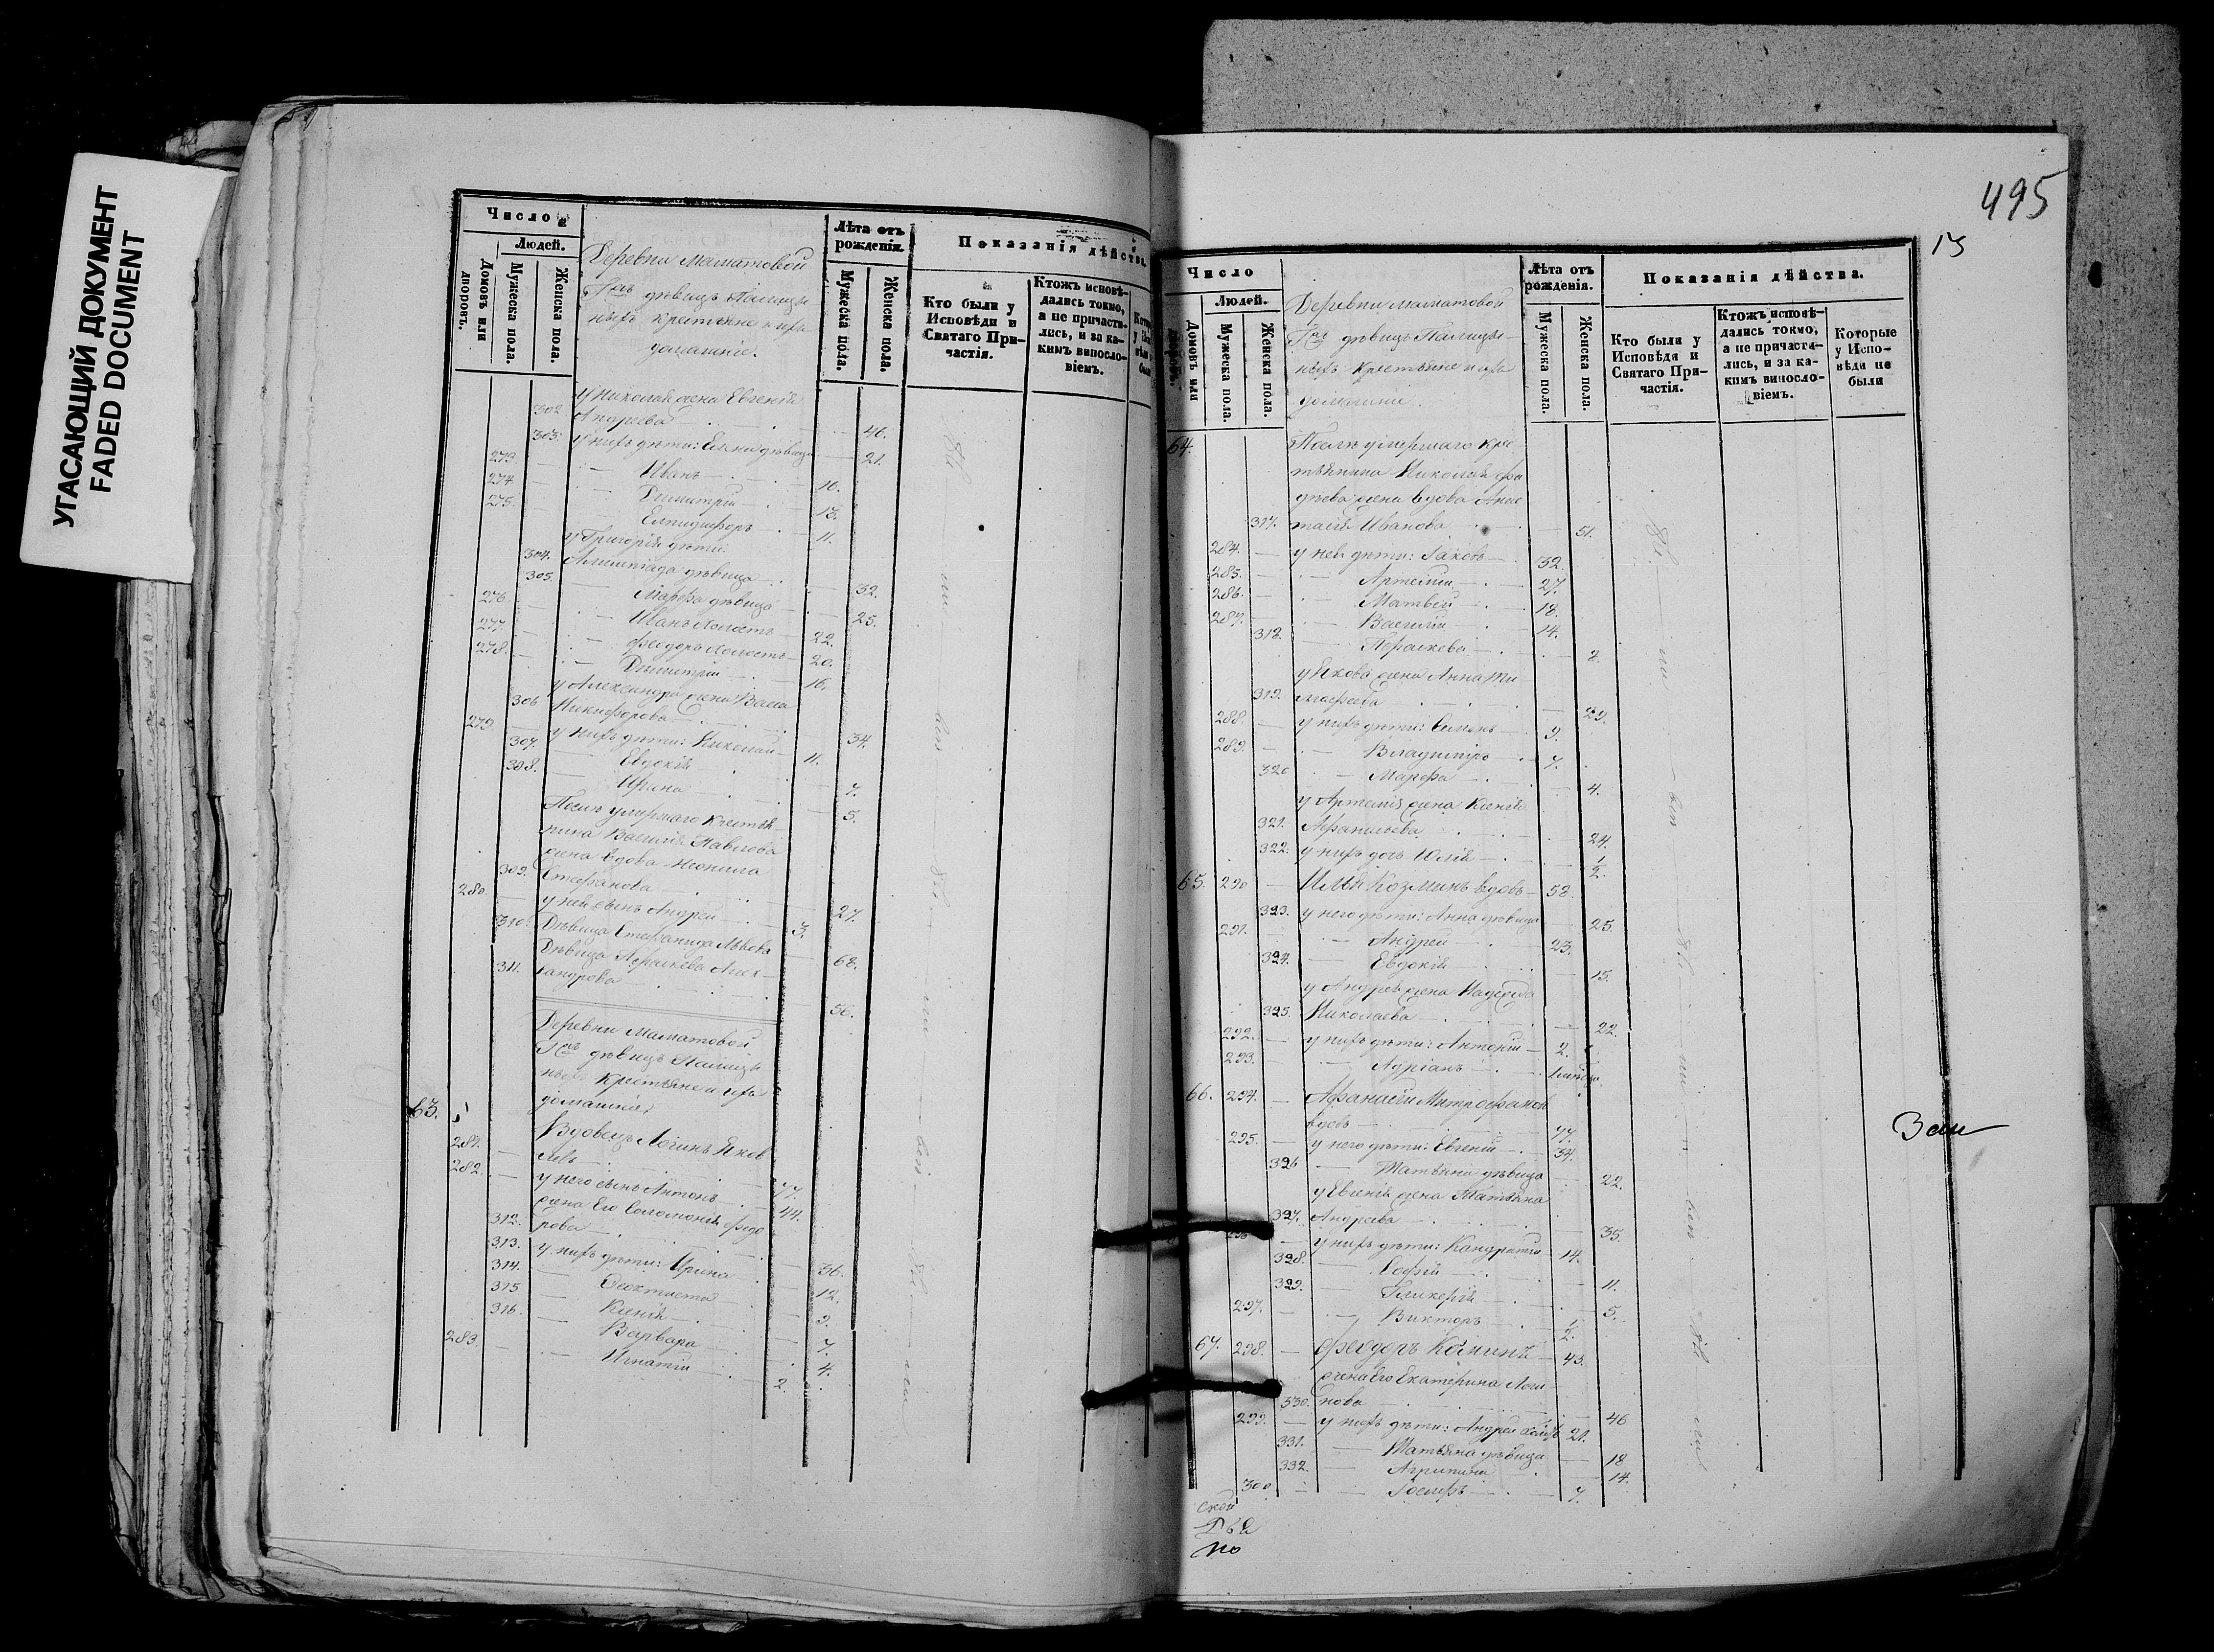 УГАСАЮЩИЙ ДОКУМЕНТ
FADED DOCUMENT
Число
Людей.
Домовъ или дворовъ.
Мужеска пола.
Женска пола.
Деревни Маматовой
дѣвицъ
крестьяне и ихъ
домашніе.
Лѣта отъ рожденія.
Мужеска пола.
Женска пола.
Показанія дѣйства.
Кто были у Исповѣди и Святаго Причастія.
Ктожъ исповѣдались токмо, а не причастились, и за какимъ винословіемъ.
у Николая жена Евгенія
302 Андреева 46.
303. у нихъ дѣти: Елена дѣвица 21.
273 Иванъ 16.
274 Димитрій 13.
275. Елпидифоръ 11.
у Григорія дѣти:
304. Олимпіада дѣвица 32.
305. Марѳа дѣвица 25.
276. Иванъ холостъ 22.
277 Ѳеодоръ холостъ 20.
278. Димитрій 16.
у Александра жена Васса
306 Никифорова 34.
279. у нихъ дѣти: Николай 11.
307. Евдокія 7.
308. Ирина 5.
Послѣ умершаго крестья
нина Василія Павлова
жена вдова Неонила
309. Стефанова 27.
280. у ней сынъ Андрей 3.
310. Дѣвица Стефанида Львова 68.
Дѣвица Параскева Алек
311. сандрова 56.
Деревни Маматовой
дѣвицъ
крестьяне и ихъ
домашніе.
63. Вдовецъ Логинъ Яков
281. левъ 77.
282. у него сынъ Антонъ 44.
жена Его Соломонія Ѳедо
312. рова 36.
313. у нихъ дѣти: Ирина 12.
314. Ѳеоктиста 9.
315 Ксенія 7.
316. Варвара 4.
283. Игнатій 2.
495
13
Число
Людей.
Домовъ или дворовъ.
Мужеска пола.
Женска пола.
Деревни Маматовой
дѣвицъ
крестьяне и ихъ
домашніе.
Лѣта отъ рожденія.
Мужеска пола.
Женска пола.
Показанія дѣйства.
Кто были у Исповѣди и Святаго Причастія.
Ктожъ исповѣдались токмо, а не причастились, и за какимъ винословіемъ.
Которые у Исповѣди не были
64. Послѣ умершаго кре
стьянина Николая Ѳа
дѣева жена вдова Анас
317. тасія Иванова 51.
284. у нея дѣти: Іаковъ 32.
285. Артемій 27.
286. Матвѣй 18.
287. Василій 14.
318. Параскева 8.
у Якова жена Анна Ти
319. моѳеева 29.
288. у нихъ дѣти: Симонъ 9.
289. Владиміръ 7.
320 Марѳа 4.
у Артемія жена Ксенія
321. Афанасьева 24.
322. у нихъ дочь Юлія 1/2.
65. 290 Илья Козминъ вдовъ 58.
323. у него дѣти: Анна дѣвица 25.
291. Андрей 23.
324. Евдокія 15.
у Андрея жена Надежда
325. Николаева 22.
292. у нихъ дѣти: Антоній 2.
293. Адріанъ
66. 294. Афанасій Митрофанов
вдовъ 77.
295. у него дѣти: Евгеній 34.
326 Татьяна дѣвица 22.
у Евгенія жена Татьяна
327. Андреева 35.
296 у нихъ дѣти: Кандратій 14.
328. Софія 11.
329. Гликерія 5.
297. Викторъ 1/2.
67. 298. Ѳеодоръ 43.
жена Его Екатерина Логи
330. нова 46
299. у нихъ дѣти: Андрей 21.
331. Татьяна дѣвица 18
332. Агрипина 14.
300 Іосифъ 7.
ской
по